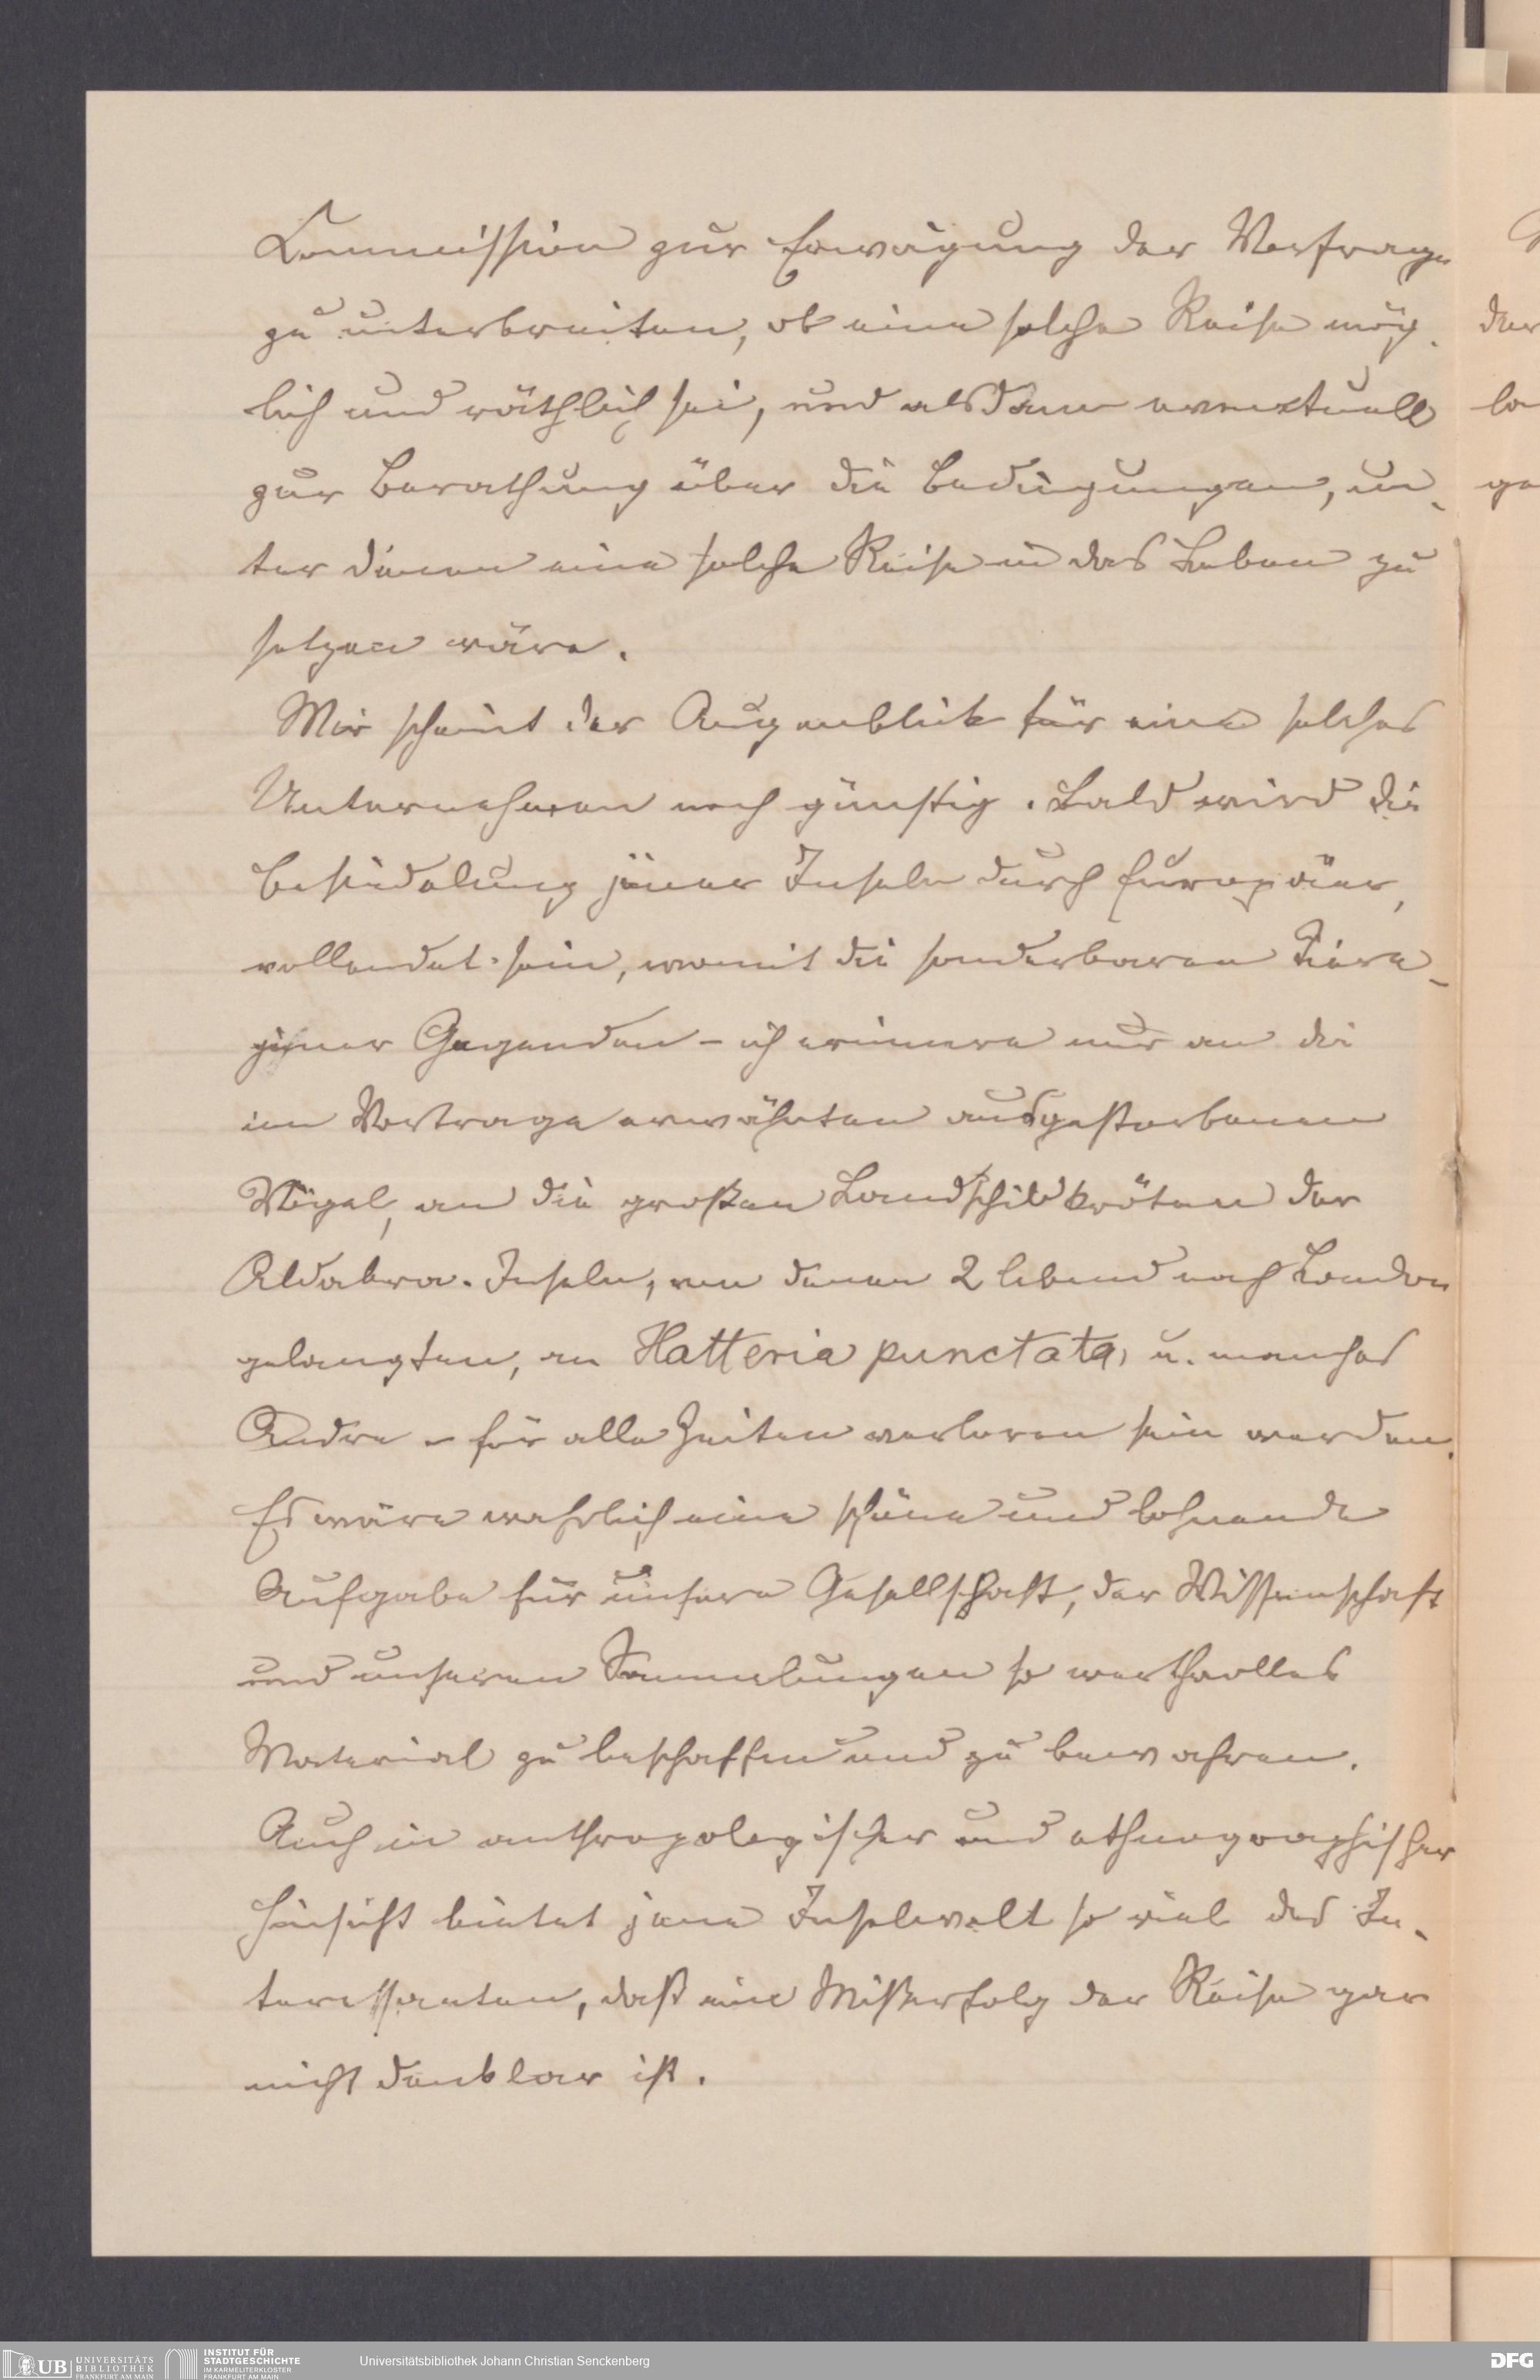 Commission zur Erwägung der Vorfrage
zu unterbreiten, ob eine solche Reise mög-
lich und räthlich sei, und alsdann eventuell
zur Berathung über die Bedingungen, un-
ter denen eine solche Reise in das Leben zu
setzen wäre.
Mir scheint der Augenblick für eine solches
Unternehmen noch günstig. Bald wird die
Besiedelung jener Inseln durch Europäer,
vollendet sein, womit die sonderbaren Tiere
jener Gegenden – ich erinnere nur an die
im Vortrage erwähnten ausgestorbenen
Vögel, an die großen Landschildkröten der
Aldabra-Inseln, von denen 2 lebend nach London
gelangten, an Hatteria punctata, u. manches
Andre – für alle Zeiten verloren sein werden.
Es wäre wahrlich eine schöne und lohnende
Aufgabe für unsere Gesellschaft, der Wissenschaft
und unseren Sammlungen so werthvolles
Material zu beschaffen und zu bewahren.
Auch in anthropologischer und ethnographischer
Hinsicht bietet jene Inselwelt so viel des In-
teressanten, daß ein Mißerfolg der Reise gar
nicht denkbar ist.
der
la
ge
UB UNIVERSITÄTS
BIBLIOTHEK
FRANKFURT AM MAIN
INSTITUT FÜR
STADTGESCHICHTE
IM KARMELITERKLOSTER
FRANKFURT AM MAIN
Universitätsbibliothek Johann Christian Senckenberg
DFG